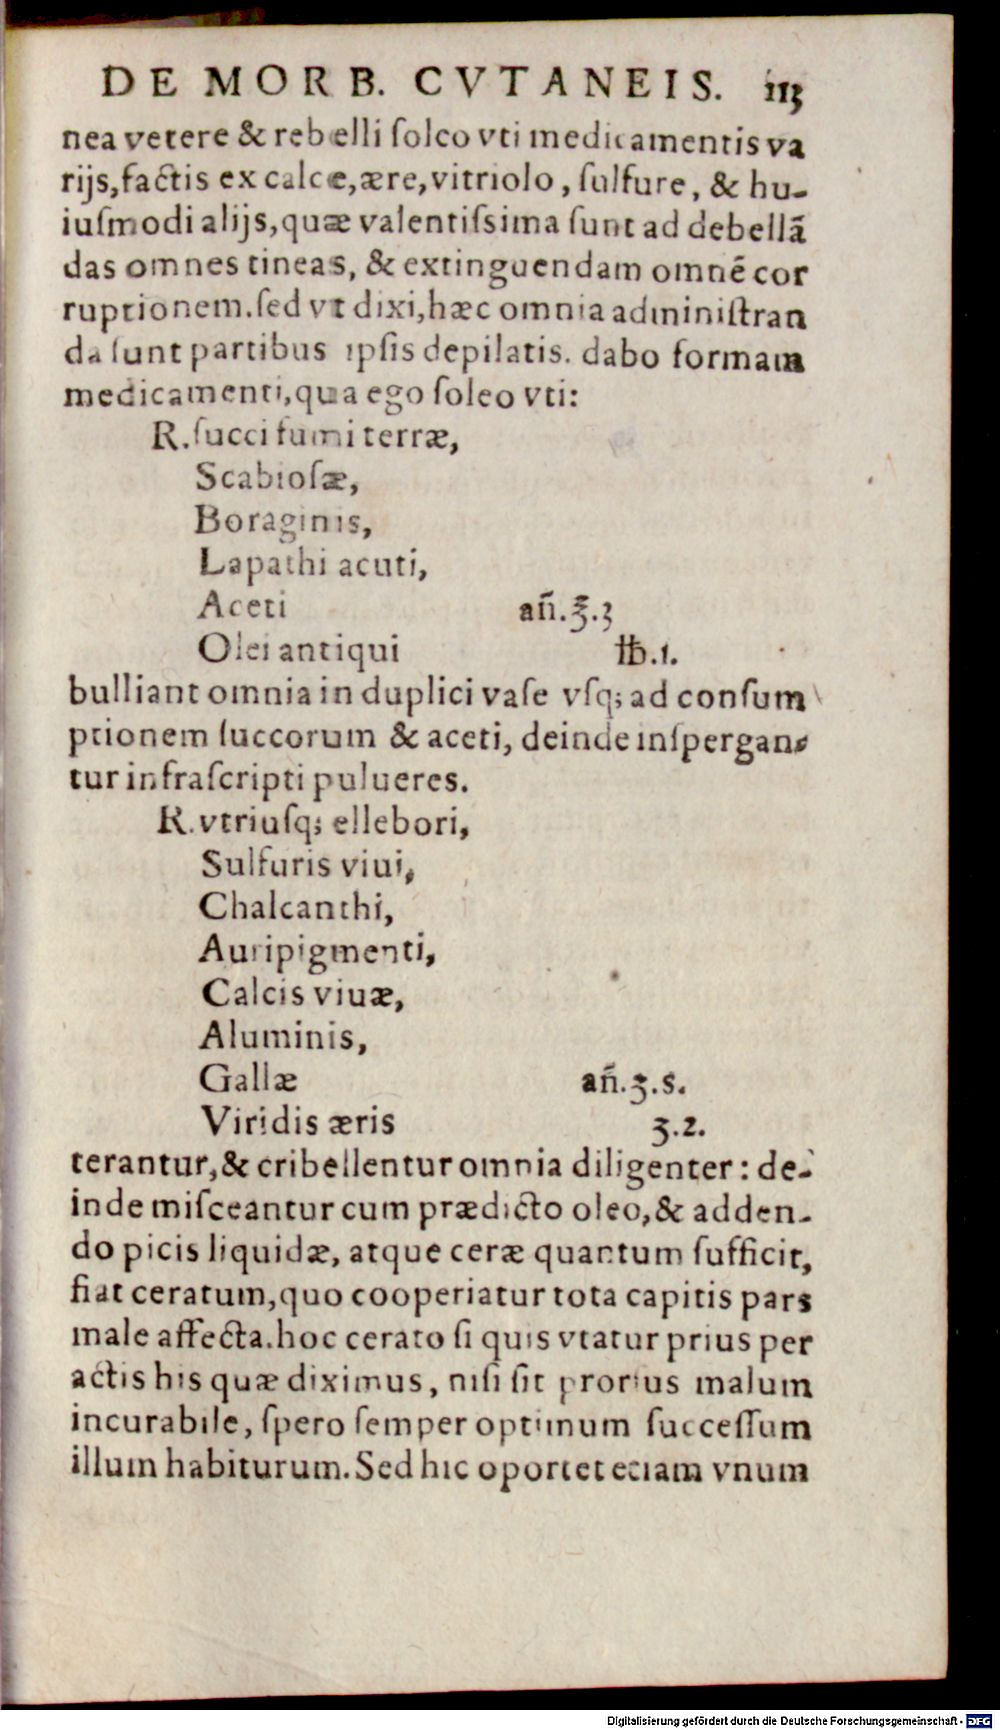 DE MORB. CVTANEIS. 113
nea vetere & rebelli ſoleo vti medicamentis va
rijs,factis ex calce,ære,vitriolo, ſulfure, & hu-
iuſmodi alijs,quæ valentiſsima ſunt ad debellã
das omnes tineas, & extinguendam omnẽ cor
ruptionem.ſed vt dixi,hæc omnia adminiſtran
da ſunt partibus ipſis depilatis. dabo formam
medicamenti,qua ego ſoleo vti:
R.ſucci fumi terræ,
Scabioſæ,
Boraginis,
Lapathi acuti,
Aceti añ.℥.3
Olei antiqui ℔.1.
bulliant omnia in duplici vaſe vſq; ad conſum
ptionem ſuccorum & aceti, deinde inſpergan-
tur infraſcripti pulueres.
R.vtriuſq; ellebori,
Sulfuris viui,
Chalcanthi,
Auripigmenti,
Calcis viuæ,
Aluminis,
Gallæ añ.ʒ.s.
Viridis æris ʒ.2.
terantur,& cribellentur omnia diligenter: de-
inde miſceantur cum prædicto oleo,& adden-
do picis liquidæ, atque ceræ quantum ſufficit,
fiat ceratum,quo cooperiatur tota capitis pars
male affecta.hoc cerato ſi quis vtatur prius per
actis his quæ diximus, niſi ſit prorſus malum
incurabile, ſpero ſemper optimum ſucceſſum
illum habiturum. Sed hic oportet etiam vnum
Digitalisierung gefördert durch die Deutsche Forschungsgemeinschaft - DFG